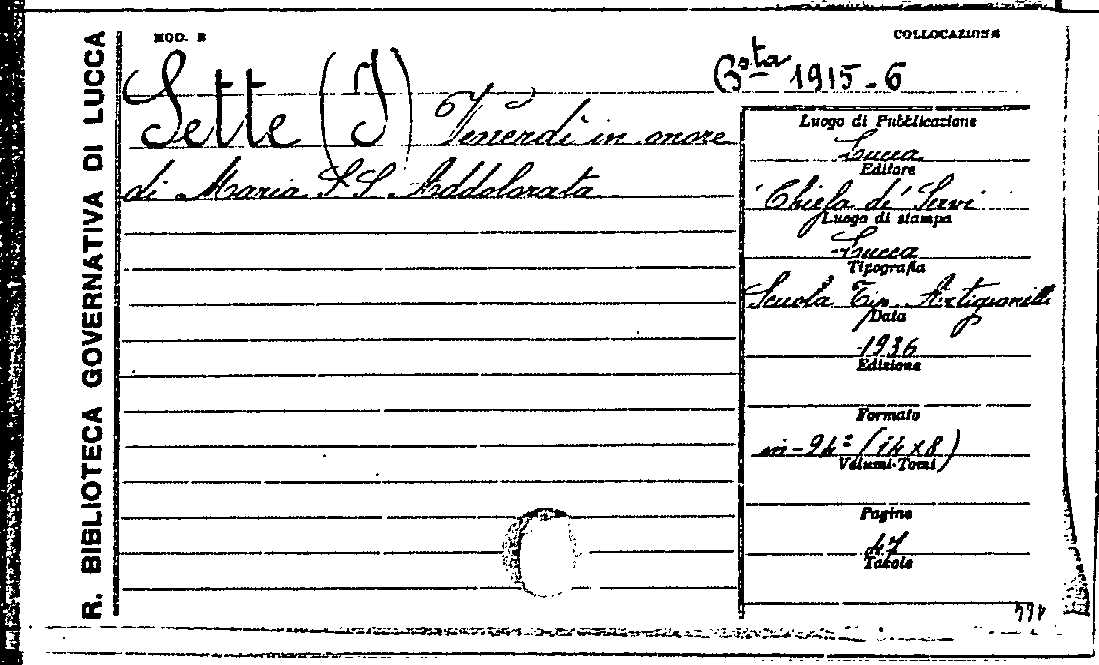 R. BIBLIOTECA GOVERNATIVA DI LUCCA
MOD. R
COLLOCAZIONE
Bˢᵗᵃ 1915-6
Sette (I) Venerdì in onore
di Maria SS Addolorata
Luogo di Pubblicazione
Lucca
Editore
Chiesa de' Servi
Luogo di stampa
Lucca
Tipografia
Scuola Tip. Artigianelli
Data
1936
Edizione
Formato
in-24° (14x8)
Volumi-Tomi
Pagine
47
Tavole